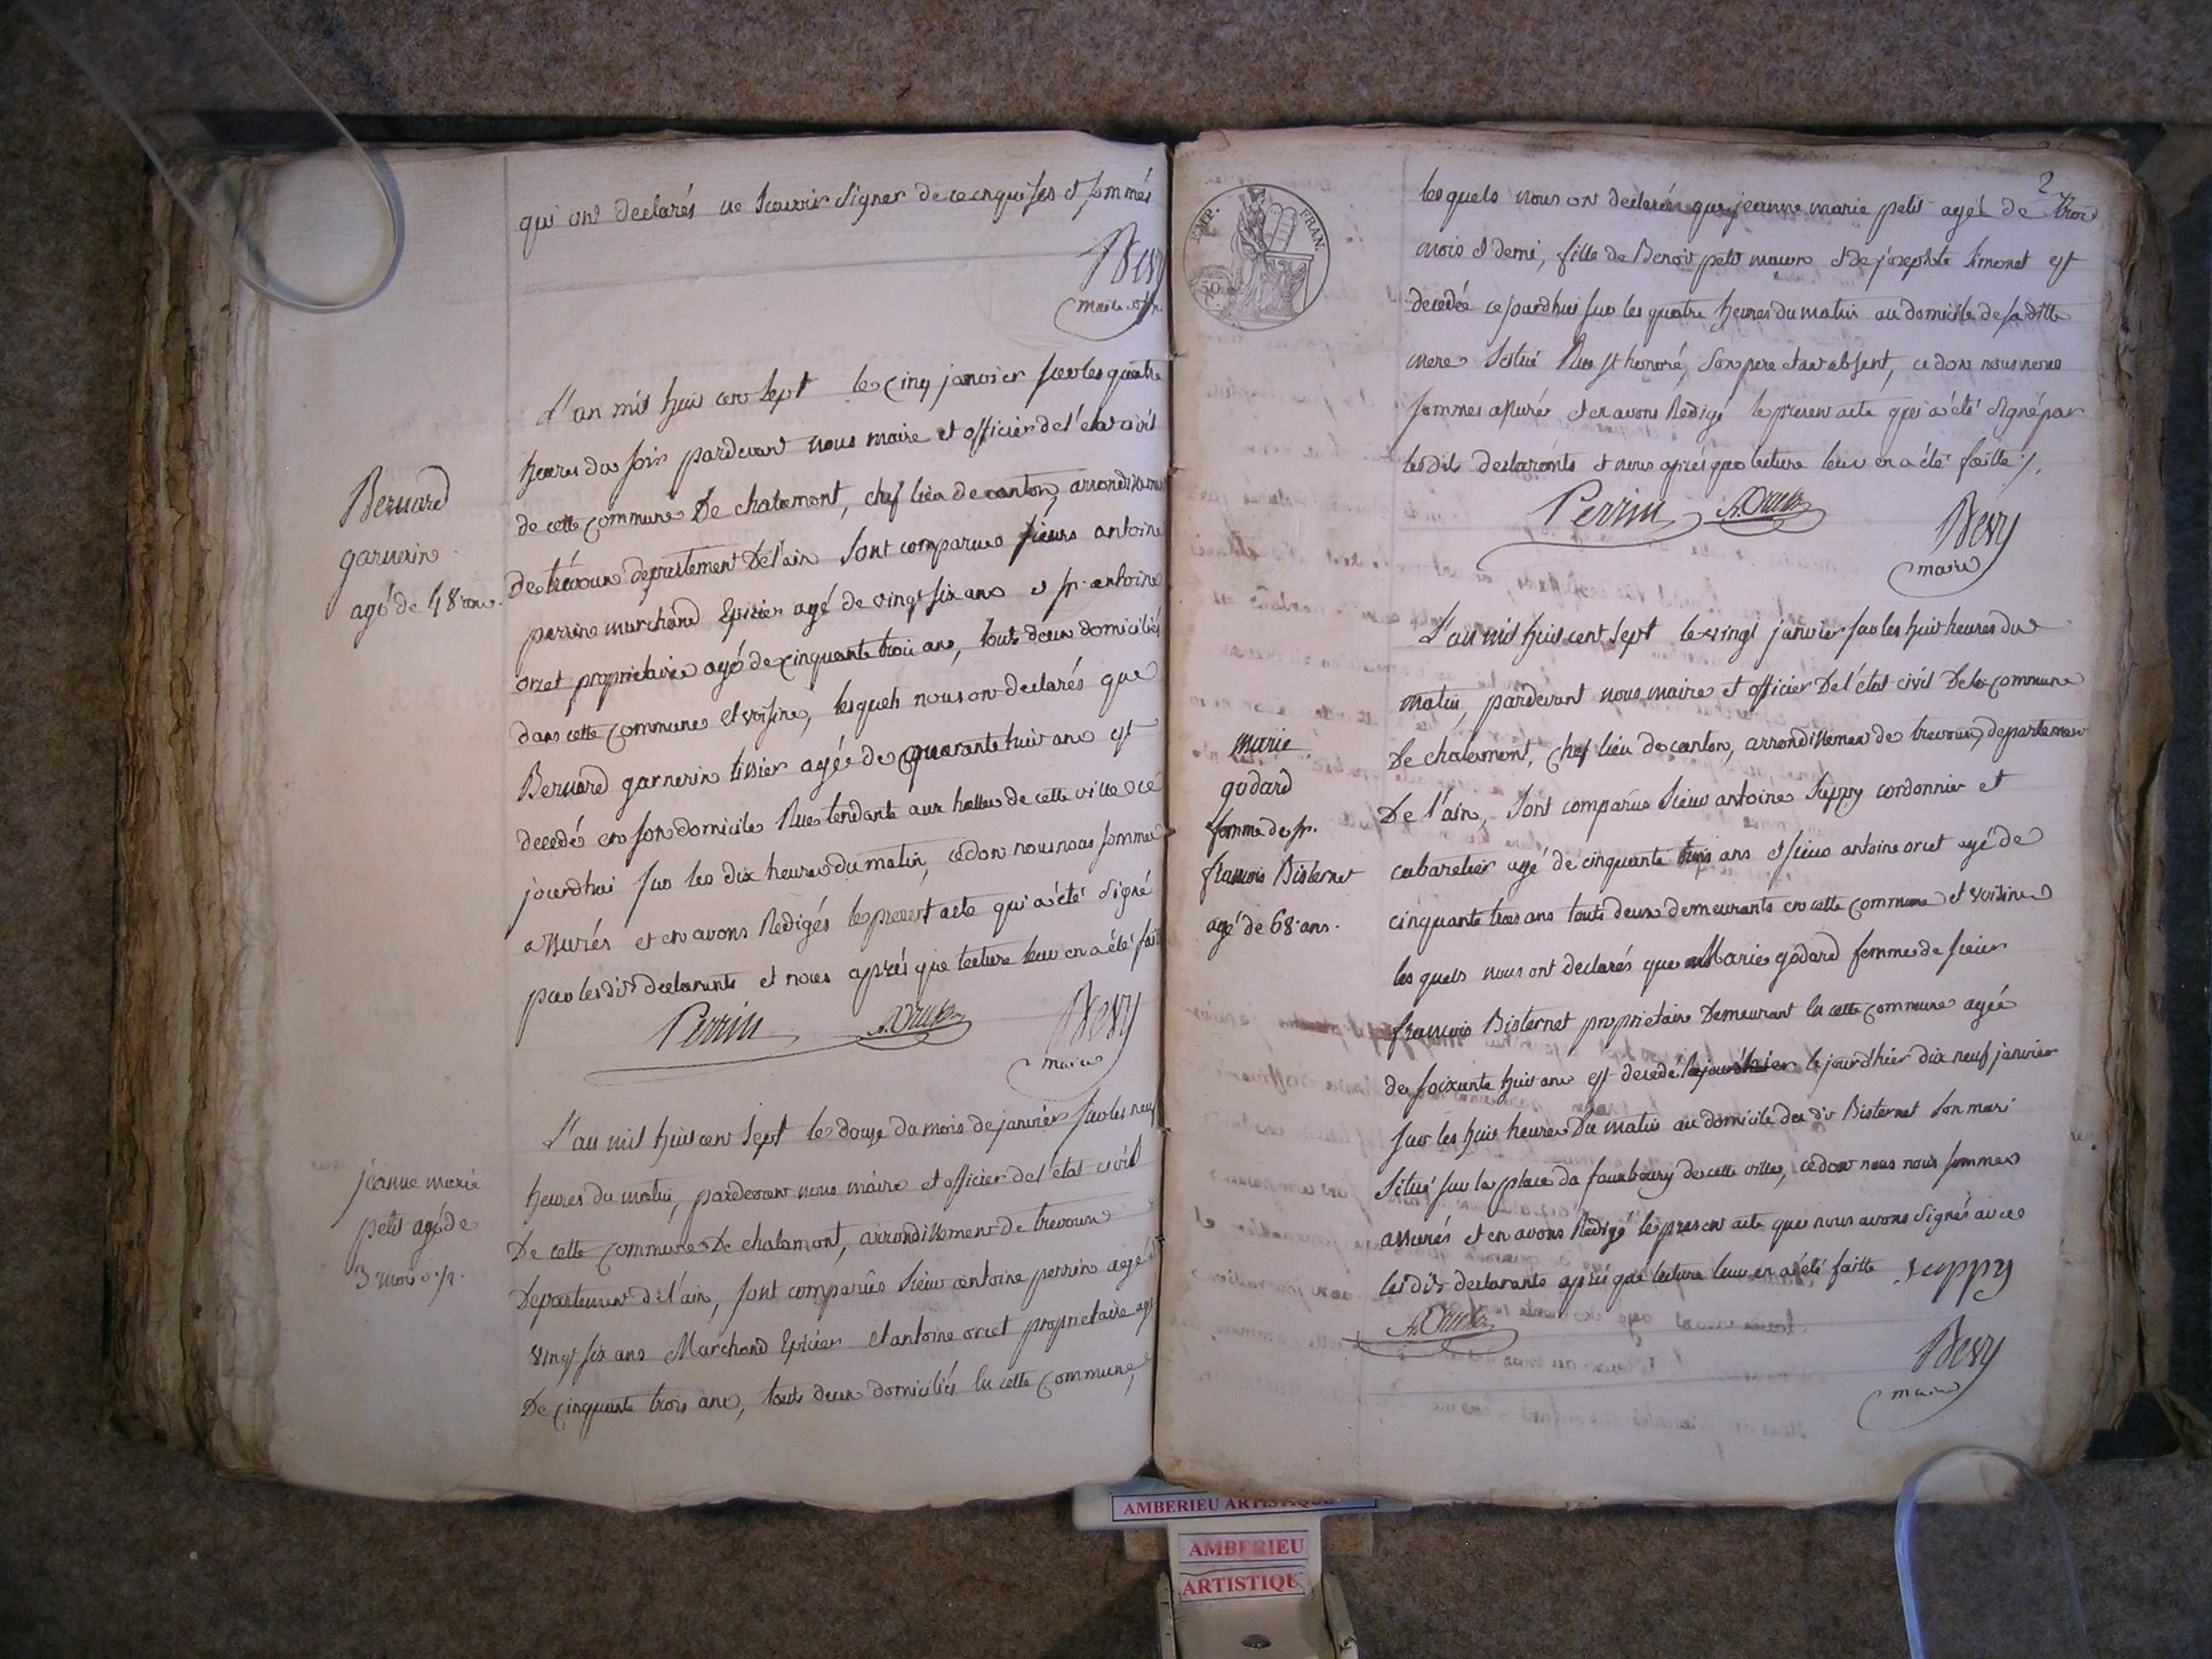 qui ont declarés ne Scavoir Signer de ce enquises et sommés
Bevy
maire
L'an mil huit cent Sept le cinq janvier sur les quatre
heures du soir pardevant nous maire et officier de l'état civil
de cette commune De chalamont, chef lieu de canton, arrondissement
de trévoux departement De l'ain Sont comparus sieurs antoine
perrin marchand Epicier agé de vingt six ans et sr. antoine
orcet propriétaire agé de cinquante trois ans, touts deux domiciliés
dans cette commune et voisins, lesquels nous ont declarés que
Bernard garnerin tissier agée de quarante huit ans est
decedé en son domicile Rue tendante aux halles de cette ville ce
jourdhui sur les dix heures du matin, ce dont nous nous sommes
assurés et en avons Redigés le present acte qui a été Signé
par les dits declarants et nous aprés que lecture leur en a été fait
Perrin A. Orcet Bevy
maire
Bernard
garnerin
agé de 48 ans.
L'an mil huit cent Sept le douze du mois de janvier sur les neuf
heures du matin, pardevant nous maire et officier de l'état civil
De cette commune De chalamont, arrondissement de trevoux
Departement de l'ain, sont comparûs Sieur antoine perrin agé
vingt six ans Marchand Epicier et antoine orcet proprietaire agé
De cinquante trois ans, touts deux domiciliés en cette commune,
jeanne marie
petit agé de
3 mois 1/2.
2
EMP. FRAN.
50
C.
les quels nous ont declarés que jeanne marie petit agée de trois
mois et demi, fille de Benoit petit maçon et de josephte Simonet est
decedée ce jourdhui sur les quatre heures du matin au domicile de sa ditte
mere Situé Rue st honoré, Son pere etant absent, ce dont nous nous
sommes assurés et en avons Redigé le present acte qui a été Signé par
les dits declarants et nous aprés que lecture leur en a été faitte ./.
Perrin A. Orcet Bevy
maire
L'an mil huit cent Sept le vingt janvier sur les huit heures du
matin, pardevant nous maire et officier De l'état civil De la commune
De chalamont, chef lieu de canton, arrondissement de trevoux, departement
De l'ain, Sont comparûs Sieur antoine Suppy cordonnier et
cabaretier agé de cinquante trois ans et sieur antoine orcet agé de
cinquante trois ans touts deux demeurants en cette commune et voisins
les quels nous ont declarés que Marie godard femme de sieur
françois Bisternet proprietaire Demeurant en cette commune agée
de soixante huit ans est decedé le jourd'hier dix neuf janvier
sur les huit heures Du matin au domicile du dit Bisternet Son mari
Situé sur la place du fauxbourg de cette ville, ce dont nous nous sommes
assurés et en avons Redigé le present acte que nous avons Signés avec
les dits declarants aprés que lecture leur en a été faitte Suppy
A. Orcet
Bevy
maire
marie
godard
femme de sr.
françois Bisternet
agé de 68 ans.
AMBERIEU ARTISTIQUE
AMBERIEU
ARTISTIQU